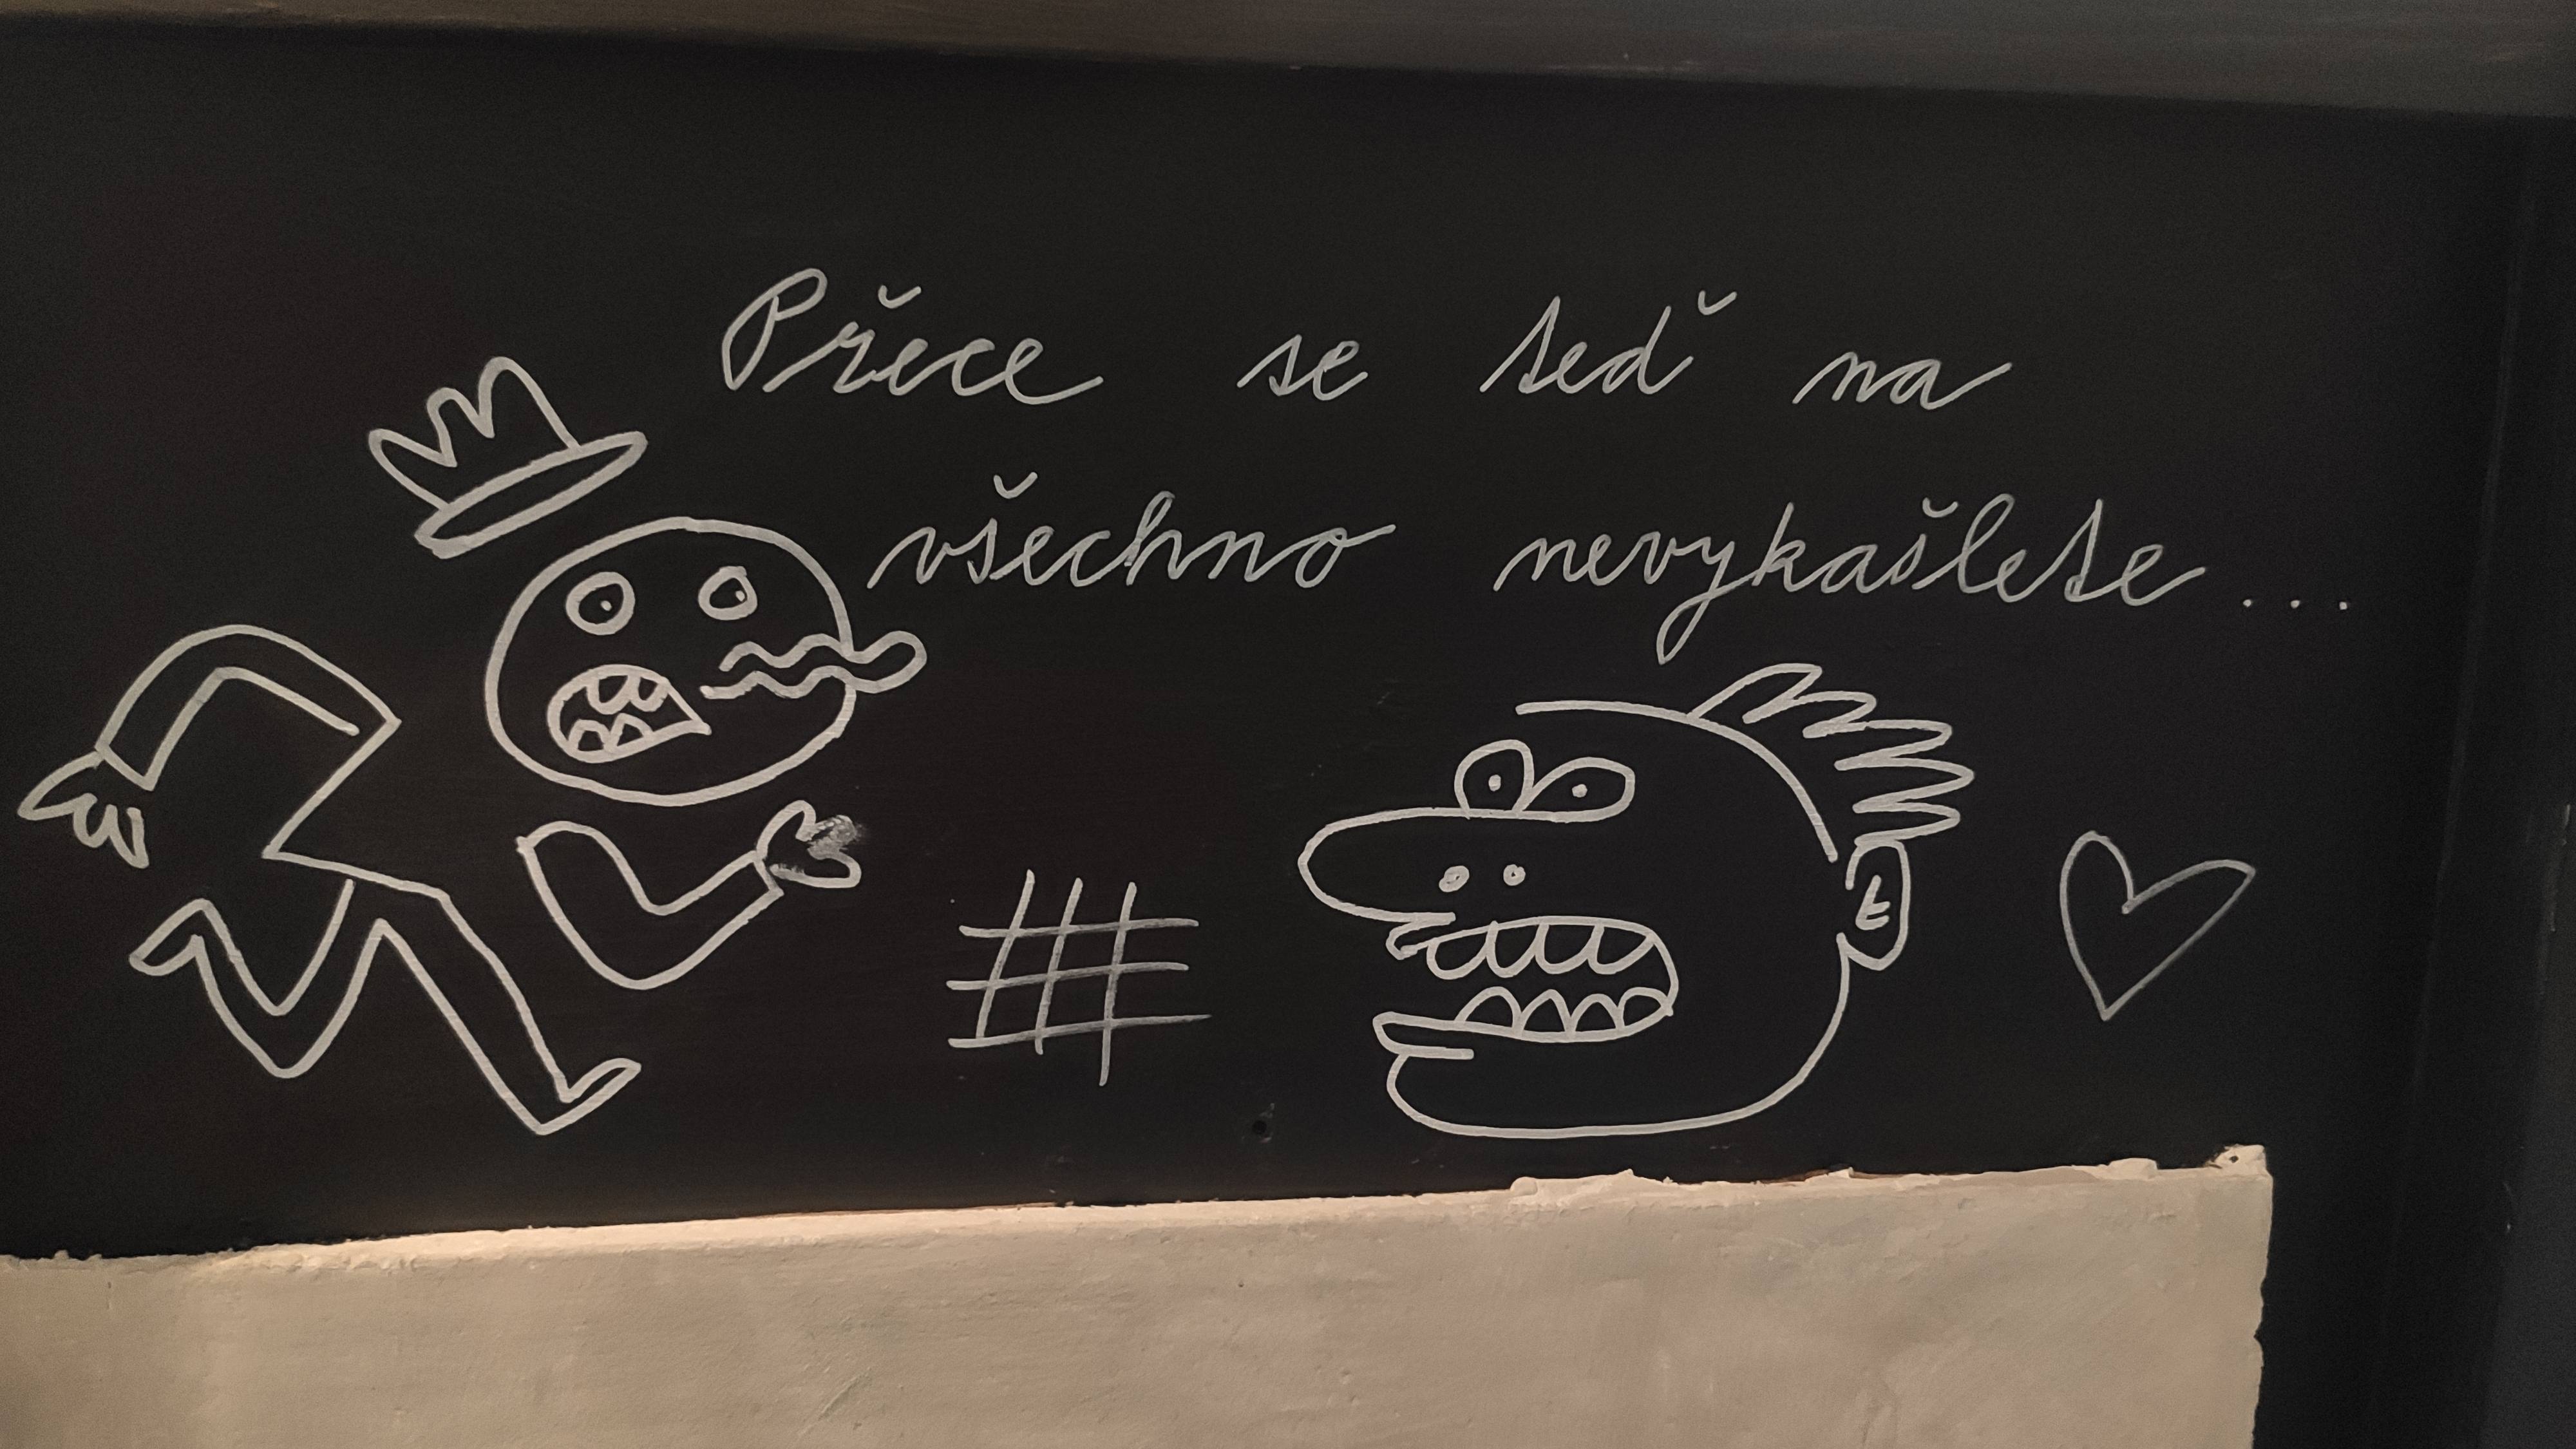 Přece se teď na
všechno nevykašlete...